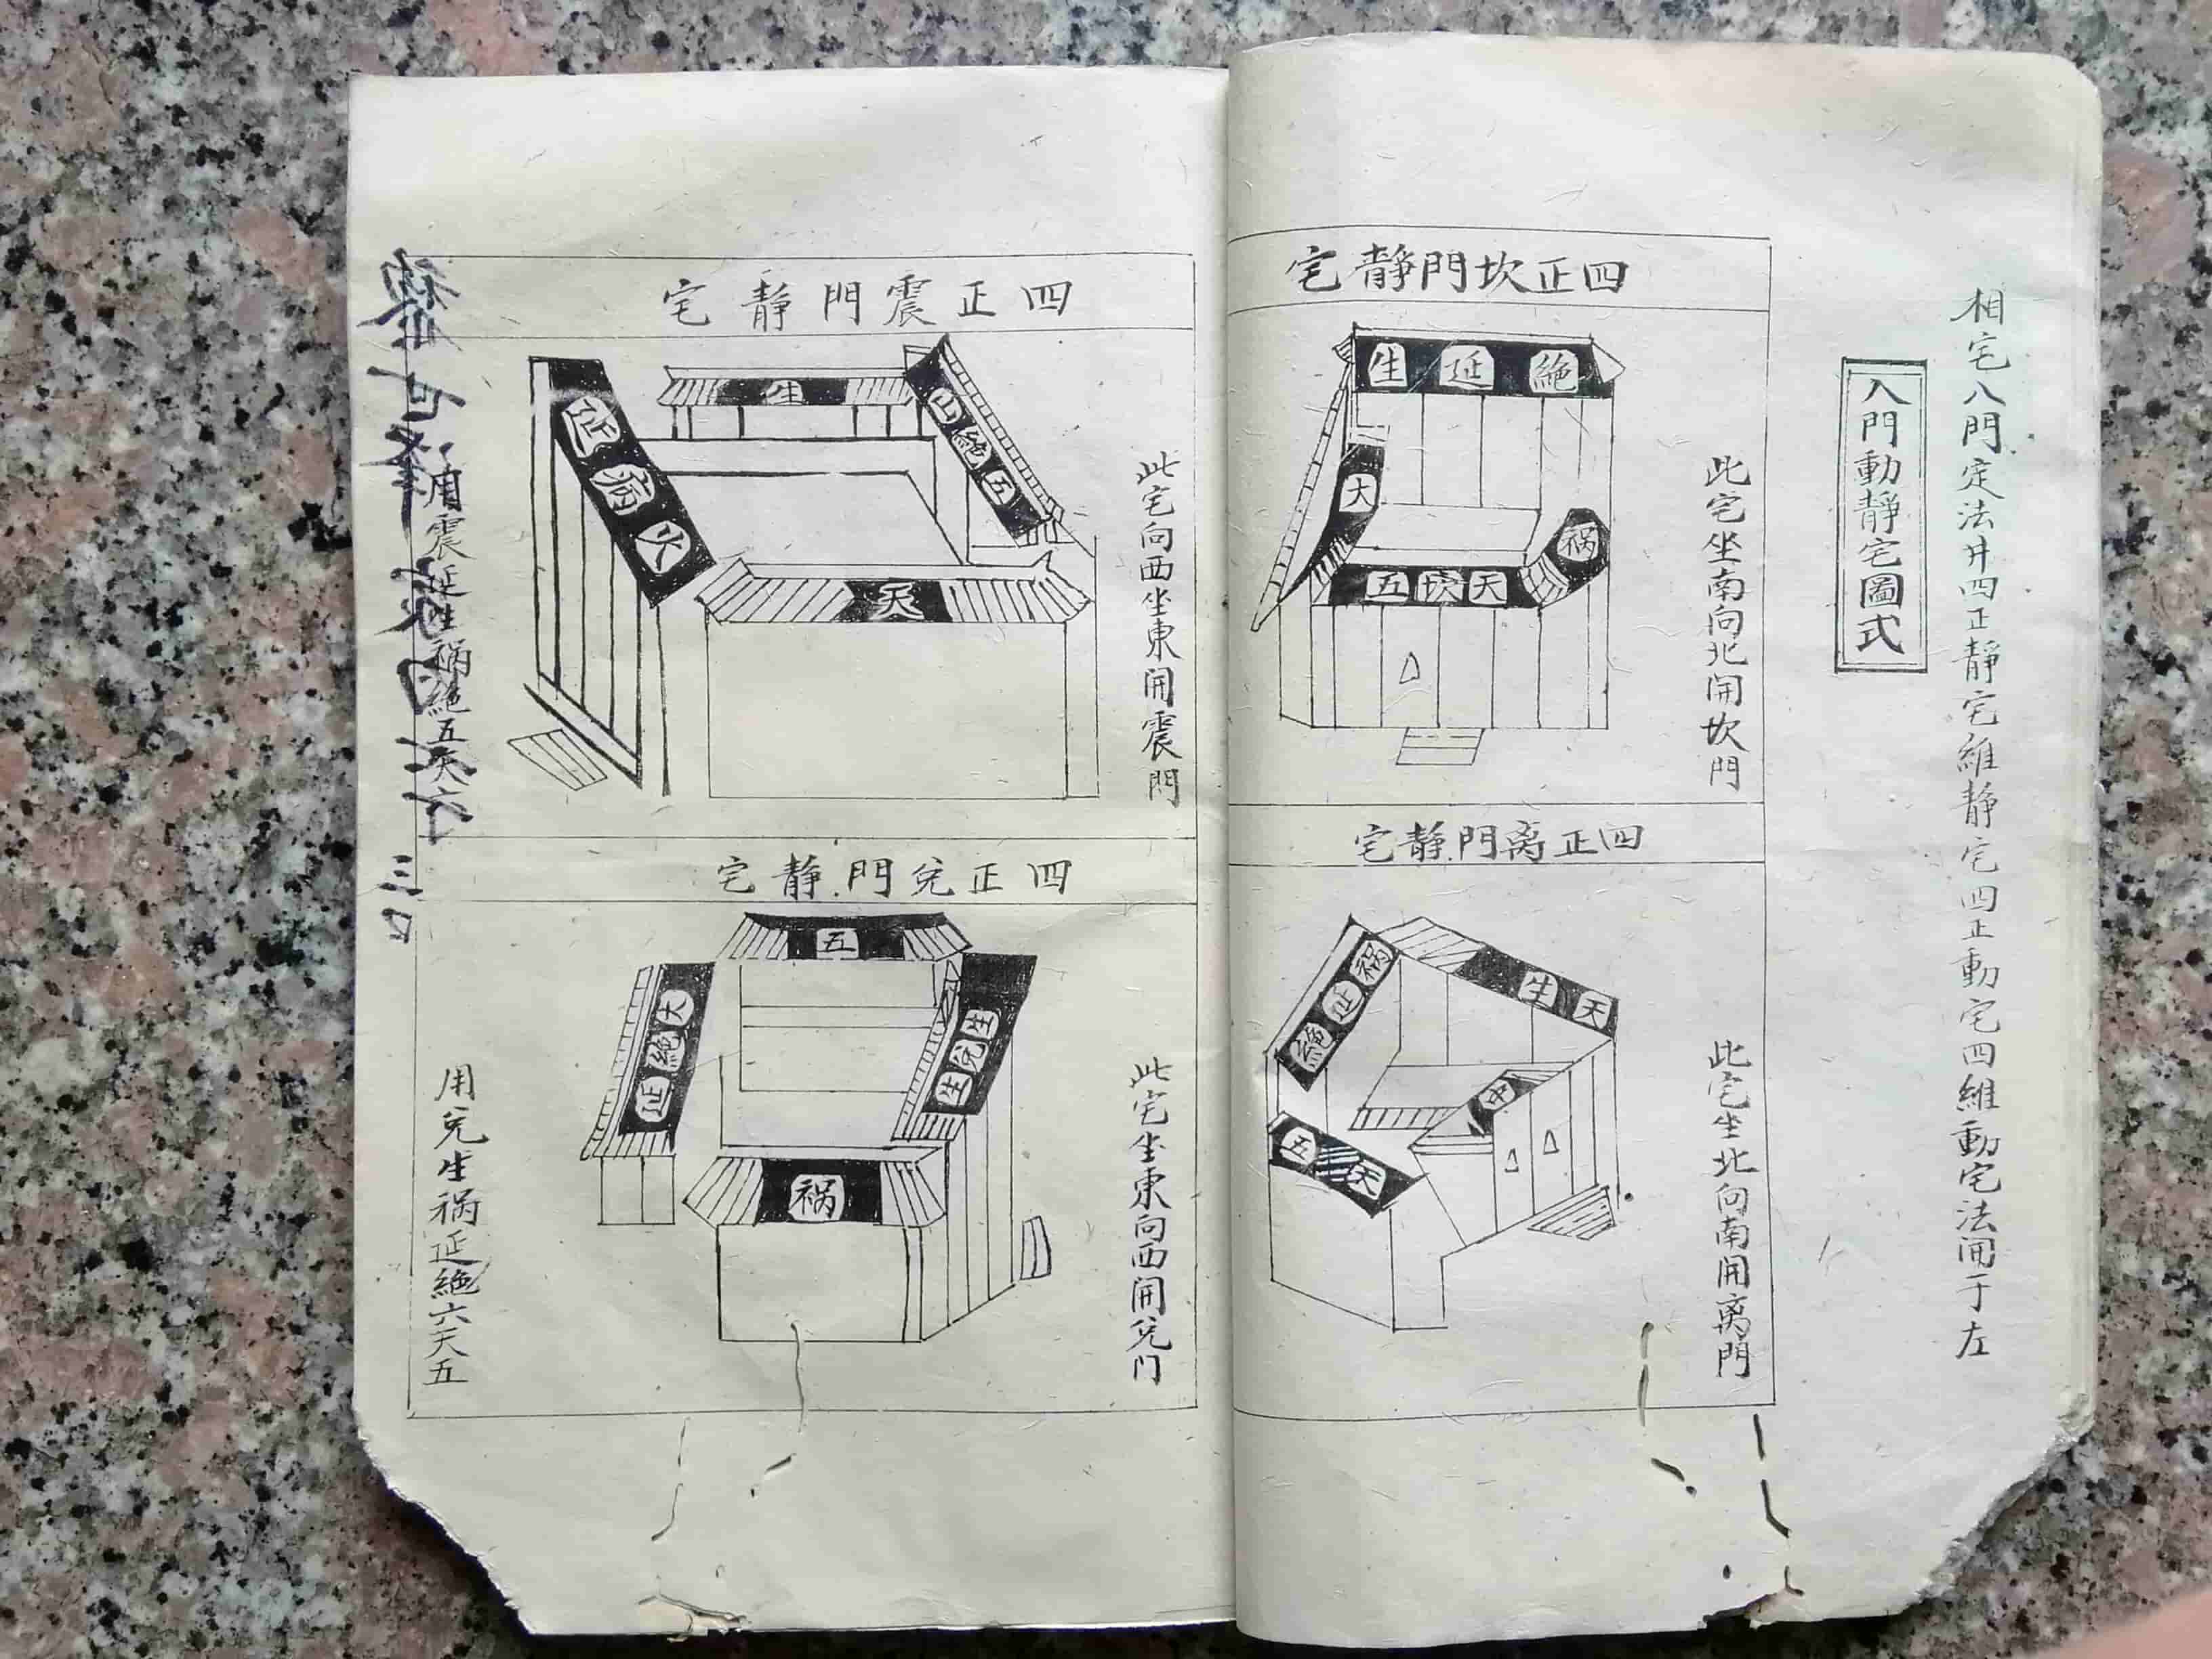 相宅八門定法廾四正靜宅維静宅四正動宅四維動宅法開于左
入門動靜宅圖式
四正坎門靜宅
此宅坐南向北開坎門
生延絶
大
祸
五坎天
四正离門靜宅
此宅坐北向南開离門
祸延絶
生天
中
五天
四正震門静宅
此宅向西坐東開震門
生
絶五
火
天
用震延生禍絶五天六
四正兌門静宅
此宅坐東向西開兌门
五
大絶延
生兌生
祸
用兌生祸延絶六天五